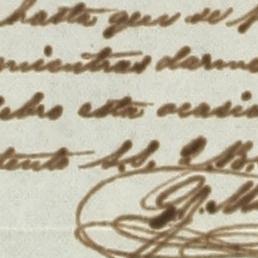 hasta que se
mientras darme
lebro esta ocasio
tento S.S. Q B.